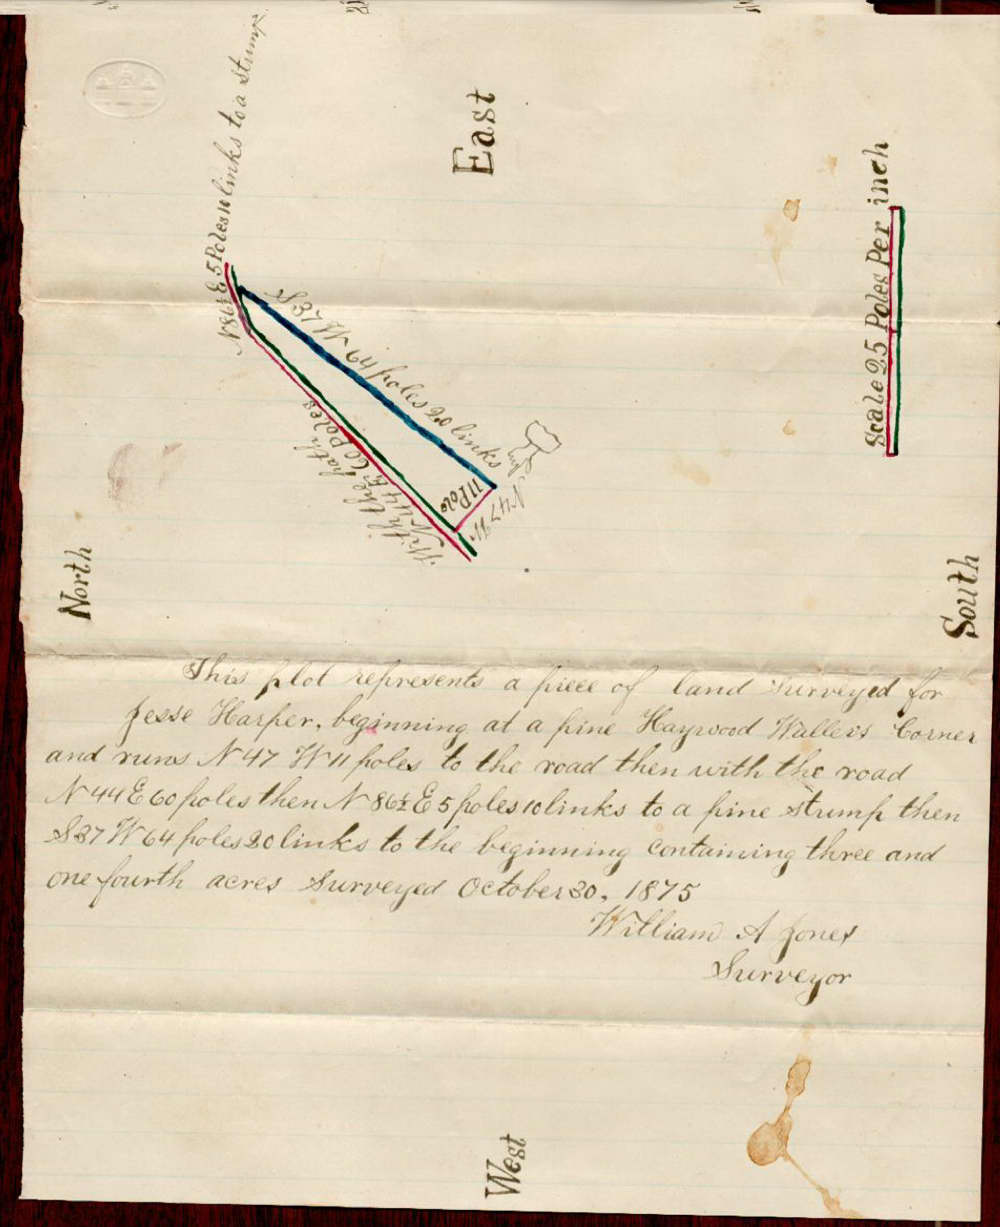 N 86½ E 5 Poles 10 links to a stump.
East
Scale 25 Poles Per inch
S 37 W 64 poles 20 links
With the
N 44 E 60 poles
11 Pole
N 47 W
North
South
This plot represents a piece of land Surveyed for
Jesse Harper, beginning at a pine Haywood Wallers Corner
and runs N 47 W 11 poles to the road then with the road
N 44 E 60 poles then N 86½ E 5 poles 10 links to a pine stump then
S 37 W 64 poles 20 links to the beginning containing three and
one fourth acres Surveyed October 30, 1875
William A Jones
Surveyor
West